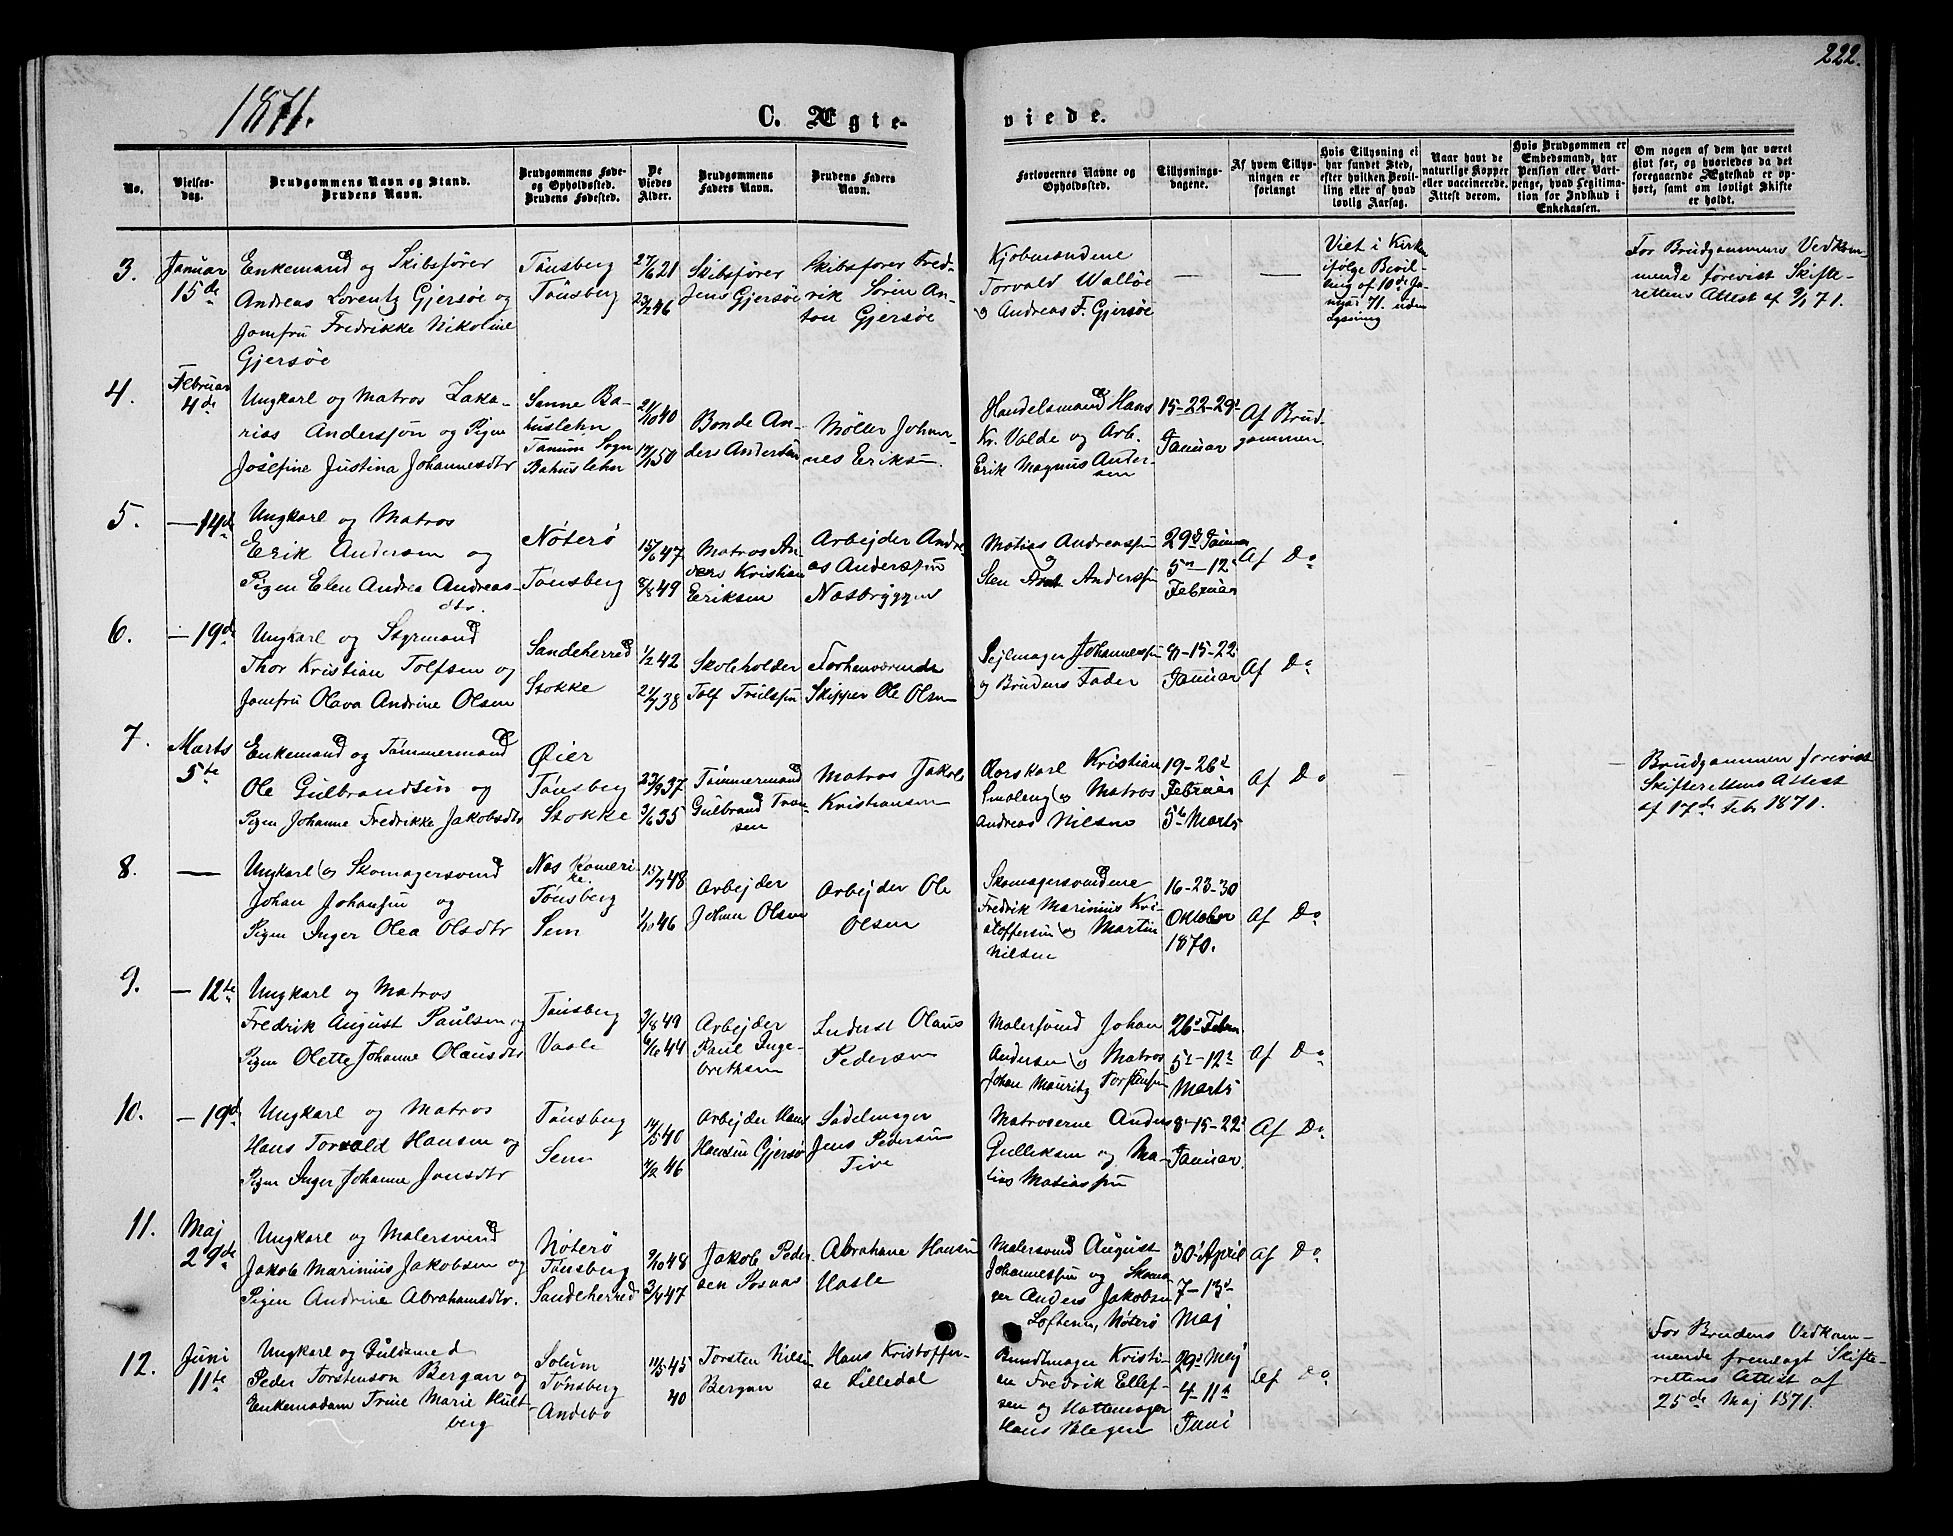 222.
1871.
C. Ægte-
viede.
No.
Vielses-
dag.
Brudgommens Navn og Stand.
Brudens Navn.
Brudgommens Føde-
og Opholdssted.
Brudens Fødested.
De
Viedes
Alder.
Brudgommens
Faders Navn.
Brudens Faders
Navn.
Forlovernes Navne og
Opholdssted.
Tillysnings-
dagene.
Af hvem Tillys-
ningen er
forlangt
Hvis Tillysning ei
har fundet Sted,
efter hvilken Bevil-
ling eller af hvad
lovlig Aarsag.
Naar havt de
naturlige Kopper
eller vaccinerede.
Attest derom.
Hvis Brudgommen er
Embedsmand, har
Pension eller Vart-
penge, hvad Legitima-
tion for Indskud i
Enkekassen.
Om nogen af dem har været
givt før, og hvorledes da det
foregaaende Ægteskab er op-
hørt, samt om lovligt Skifte
er holdt.
3.
Januar
15de
Enkemand og Skibsfører
Andreas Lorentz Gjersøe og
Jomfru Fredrikke Nikoline
Gjersøe
Tønsberg
Tønsberg
27/6 21
Skibsfører
Jens Gjersøe
Skibsfører Fred-
rik Sørin An-
ton Gjersøe
Kjøbmændene
Torvald Walløe
og Andreas F. Gjersøe
—
—
Viet i Kirke
ifølge Bevil-
ling af 10de Ja-
nuar 71. uden
Lysning
For Brudgommens Vedkom-
mende forevist Skifte-
rettens Attest af 9/1 71.
4.
Februar
4de
Ungkarl og Matros Zaka-
rias Andersson og Pigen
Josefine Justina Johannesdtr
Sanne Ba-
huslehn
Tanum Sogn
Bahuslehn
21/10 40
Bonde An-
ders Andersøn
Møller Johan-
nes Eriksen
Handelsmand Hans
Kr. Valde og Arb.
Erik Magnus Ander-
sen
15-22-29d
Januar
Af Brud-
gommen.
5.
— 14de
Ungkarl og Matros
Erik Andersen og
Pigen Elen Andrea Andreas-
dtr.
Nøterø
Tønsberg
15/6 47
8/8 49
Matros An-
ders Kristian
Eriksen
Arbejder Andre-
as Anderssen
Næsbryggen
Matias Andreassen
og
Sten Anderssen
29d Januar
5te-12d
Februar
Af Do
6.
— 19de
Ungkarl og Styrmand
Thor Kristian Tolfsen og
Jomfru Olava Andrine Olsen
Sandeherred
Stokke
1/2 42
21/7 38
Skoleholder
Tolf Trulssen
Forhenværende
Skipper Ole Olsen
Sejlmager Johannessen
og Brudens Fader
8-15-22
Januar
Af Do
7.
Marts
5te
Enkemand og Tømmermand
Ole Gulbrandsen og
Pigen Johanne Fredrikke Jakobsdtr
Øier
Tønsberg
Stokke
27/9 37
3/6 35
Tømmermand
Gulbrand Tron-
sen
Matros Jakob
Kristiansen
Rorskarl Kristian
Smaleng og Matros
Andreas Nilsen
19-26d
Februar
5te Marts
Af Do
—
Brudgommen forevist
Skifterettens Attest
af 17de Feb 1871.
8.
—
Ungkarl og Skomagersvend
Johan Johansen og
Pigen Inger Olea Olsdtr
Nes Romeri-
ke.
Tønsberg
Sem
15/7 48
1/10 46
Arbejder
Johan Olsen
Arbejder Ole
Olsen
Skomagersvendene
Fredrik Marinius Kri-
stoffersen og Martin
Nilsen
16-23-30
Oktober
1870.
Af Do
9.
— 12te
Ungkarl og Matros
Fredrik August Paulsen og
Pigen Olette Johanne Olausdtr
Tønsberg
Vaale
3/8 49
6/10 44
Arbejder
Paul Inge-
bretsen
Inderst Olaus
Pedersen
Malersvend Johan
Andersen og Matros
Johan Mauritz Torstensen
26d Febru
5te-12te
Marts
Af Do
10.
— 19de
Ungkarl og Matros
Hans Torvald Hansen og
Pigen Inger Johanne Jensdtr
Tønsberg
Sem
14/5 40
Arbejder Hans
Hansen Gjersø
Sadelmager
Jens Pedersen
Tive
Matroserne Anders
Gulliksen og Ma-
tias Matiassen
8-15-22d
Januar
Af Do
11.
Maj
29de
Ungkarl og Malersvend
Jakob Marinius Jakobsen og
Pigen Andrine Abrahamsdtr.
Nøterø
Tønsberg
Sandeherred
9/10 48
3/4 47
Jakob Peder-
sen Rosnæs
Abraham Hansen
Hasle
Malersvend August
Johannessen og Skoma-
ger Anders Jakobsen
Loftenes, Nøterø
30d April
7-13d
Maj
Af Do
12.
Juni
11te
Ungkarl og Guldsmed
Peder Torstenson Bergan og
Enkemadam Trine Marie Hult-
berg
Solum
Tønsberg
Andebo
11/5 45
40
Torsten Nilsen
Bergan
Hans Kristoffer-
se Lilledal
Bundtmager Kristi-
an Fredrik Ellef-
sen og Hattemager
Hans Blegen
29d Maj
4-11te
Juni
Af Do
For Brudens Vedkom-
mende fremlagt Skifte-
rettens Attest af
25de Maj 1871.